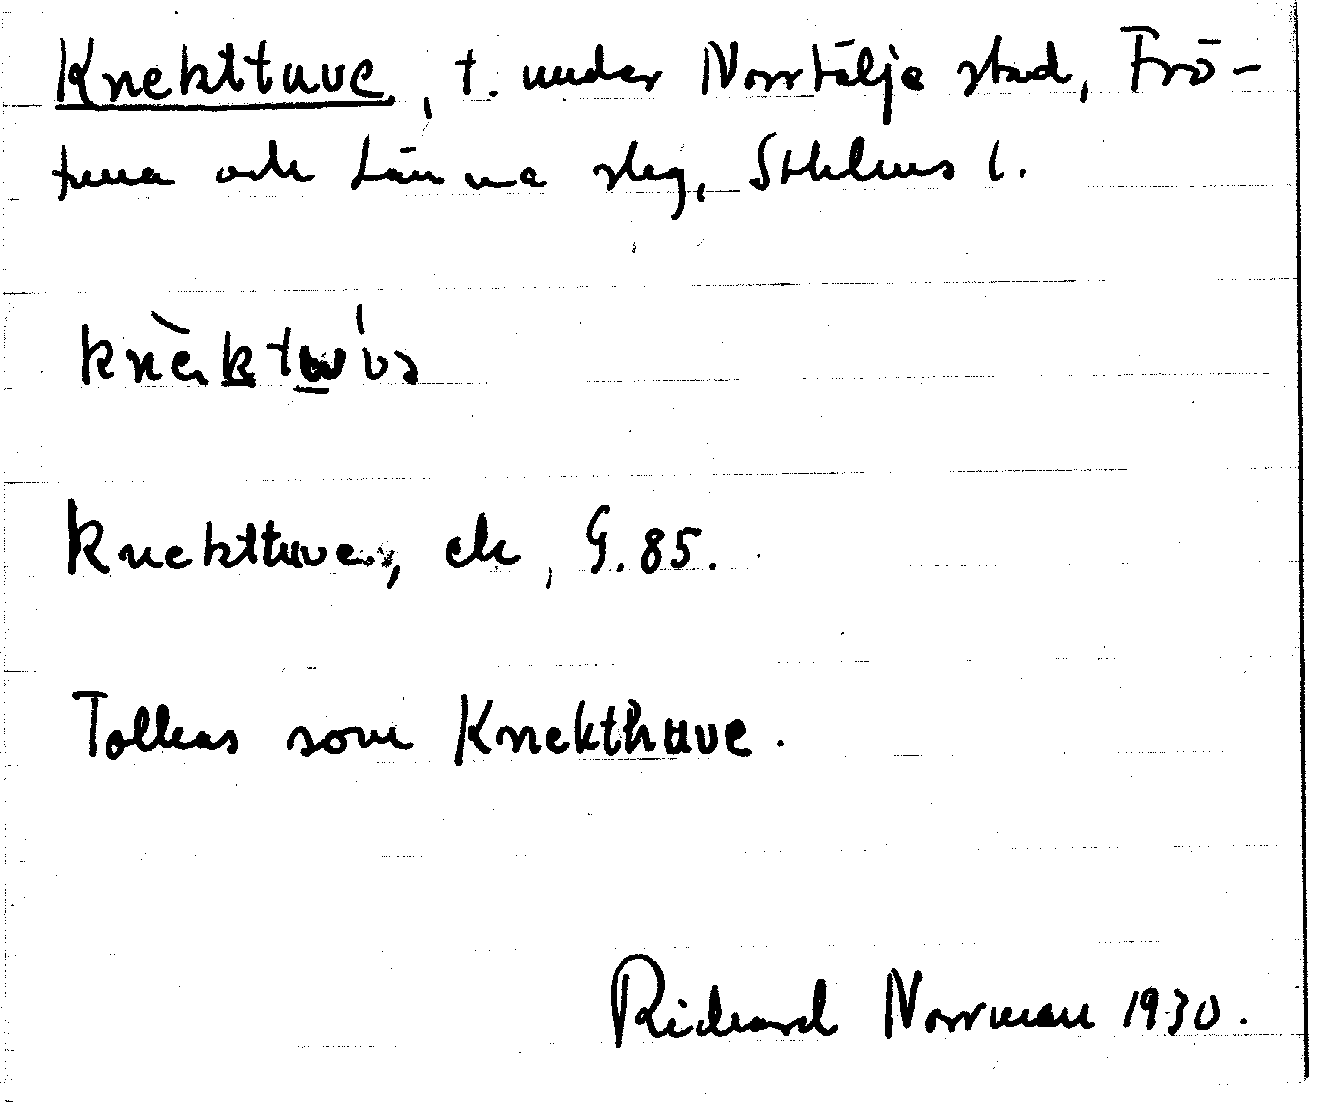 Knekttuve, t. under Norrtälje stad, Frö-
tuna och Länna slg, Sthlms l.
Knekttuve, ek, G. 85.
Tolkas som Knekthuve.
Rickard Norrman 1930.